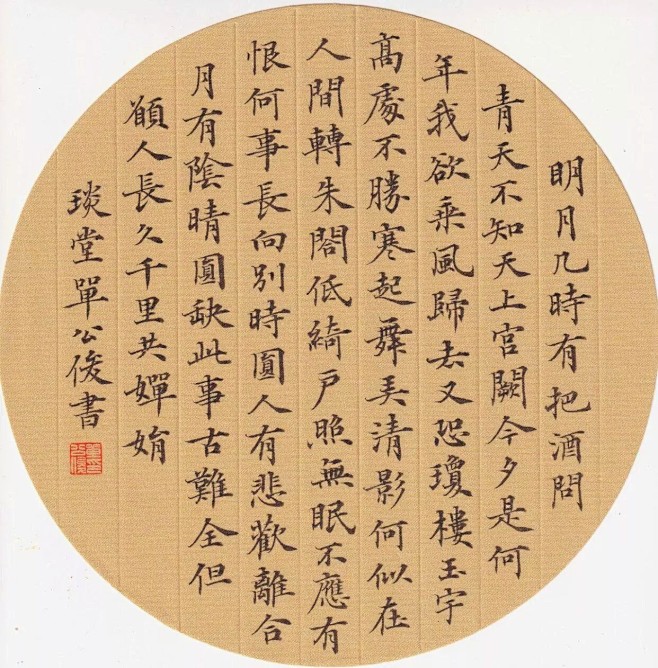 明月几時有把酒問
青天不知天上宫闕今夕是何
年我欲乘風歸去又恐瓊樓玉宇
高處不勝寒起舞弄清影何似在
人間轉朱閣低綺户照無眠不應有
恨何事長向别時圓人有悲歡離合
月有陰晴圓缺此事古難全但
願人長久千里共嬋娟
琰堂單公俊書